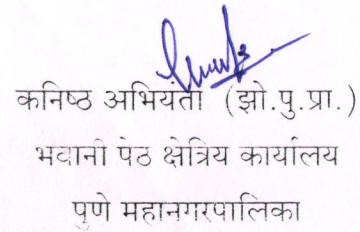 कनिष्ठ अभियंता (झो.पु.प्रा.)
भवानी पेठ क्षेत्रिय कार्यालय
पुणे महानगरपालिका